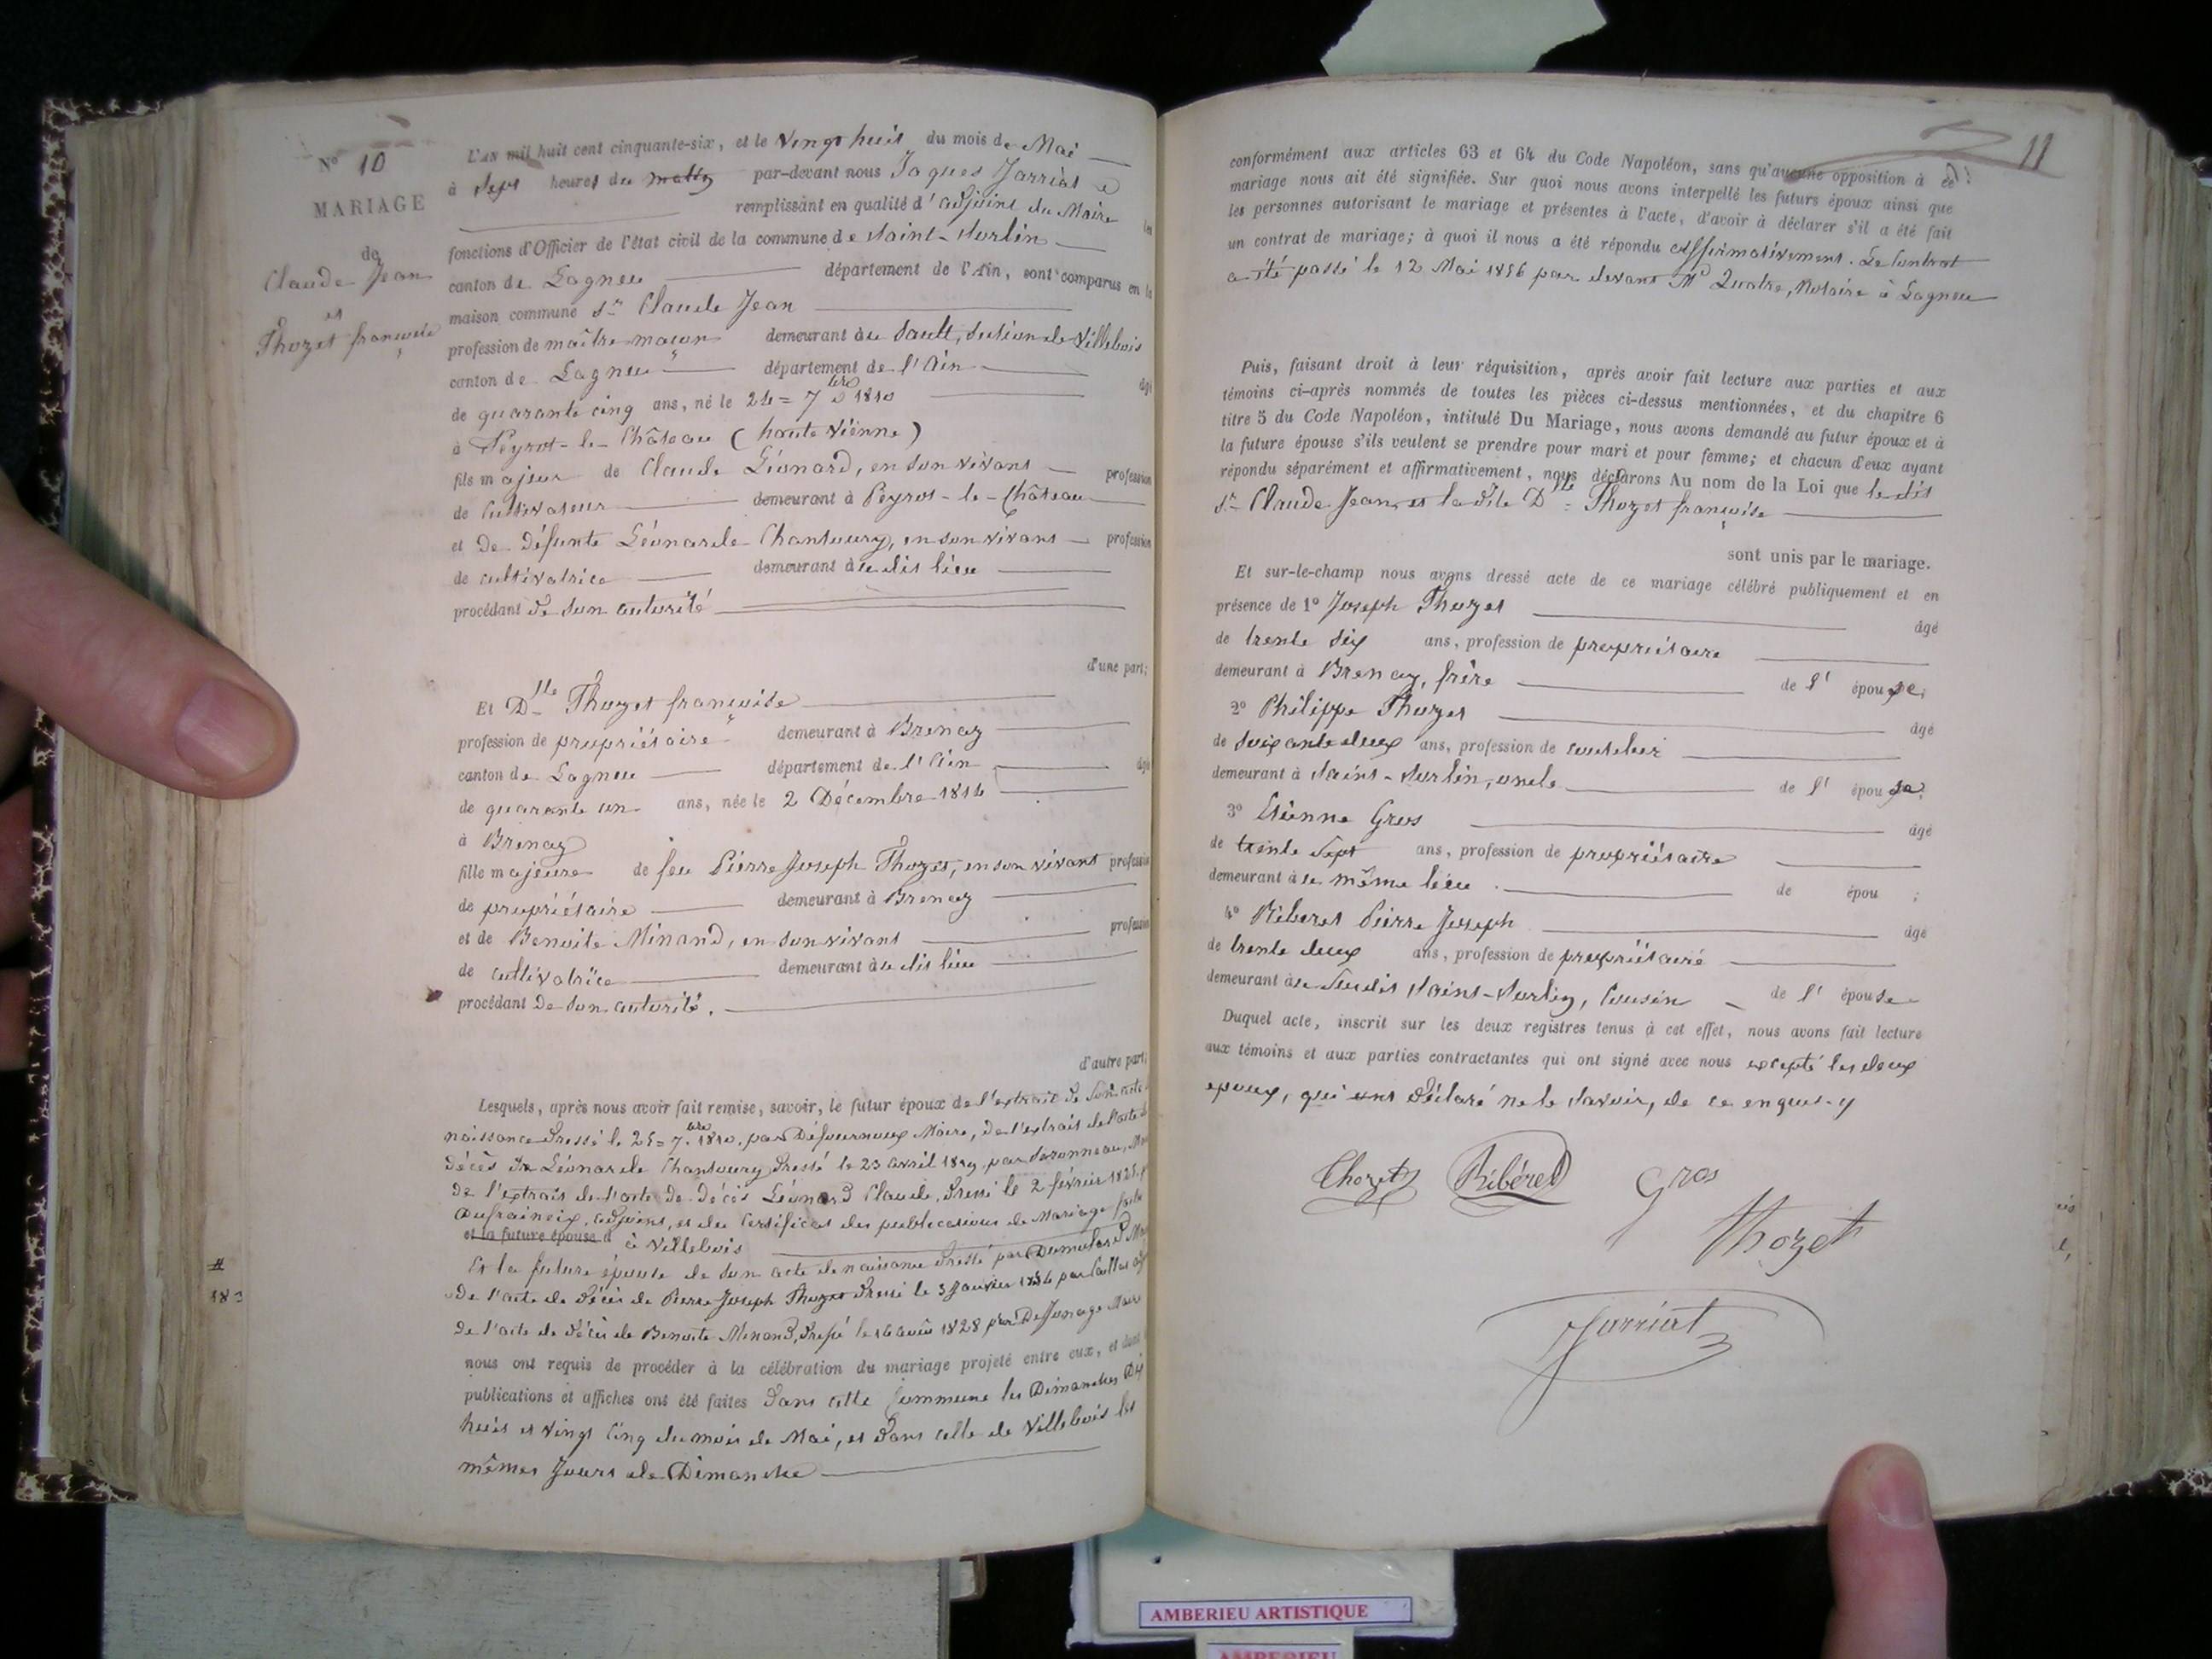 N° 10
MARIAGE
de
Claude Jean
et
Thozet françoise
L'AN mil huit cent cinquante-six, et le vingt huit du mois de Mai
à sept heures du matin par-devant nous Jaques Jarriat
remplissant en qualité d'adjoint du Maire les
fonctions d'Officier de l'état civil de la commune de Saint-Sorlin
canton de Lagneu département de l'Ain, sont comparus en la
maison commune Sr Claude Jean
profession de maître maçon demeurant au Sault, section de Villebois
canton de Lagneu département de l'Ain âgé
de quarante cinq ans, né le 24 = 7bre 1810
à Peyrat-le-Château (haute Vienne)
fils majeur de Claude Léonard, en son vivant profession
de Cultivateur demeurant à Peyrat-le-Château
et De Défunte Léonarde Chansoury, en son vivant profession
de cultivatrice demeurant au dit lieu
procédant de son autorité
d'une part;
Et Dlle Thozet françoise
profession de propriétaire demeurant à Brenaz
canton de Lagneu département de l'Ain âgé
de quarante un ans, née le 2 Décembre 1814
à Brenaz
fille majeure de feu Pierre Joseph Thozet, en son vivant profession
de propriétaire demeurant à Brenaz
et de Benoite Minand, en son vivant profession
de cultivatrice demeurant au dit lieu
procédant De son autorité.
d'autre part;
Lesquels, après nous avoir fait remise, savoir, le futur époux de l'extrait de son acte
naissance Dressé le 25 = 7bre 1810, par Défournoux Maire, de l'extrait de l'acte de
décès De Léonarde Chansoury Dressé le 23 avril 1819 par
De l'extrait de l'acte De décès Léonard Claude, Dressé le 2 février
adjoint, et du Certificat des publications de Mariage faite
et la future épouse d à Villebois
Et la future épouse de son acte de naissance Dressé par Dumolard
De l'acte de Décès de Pierre Joseph Thozet Dressé le 3 Janvier par
De l'acte de Décès de Benoite Minand, Dressé le 16 août 1828 par
nous ont requis de procéder à la célébration du mariage projeté entre eux, et dont
publications et affiches ont été faites Dans cette Commune les Dimanches Dix
huit et vingt Cinq du mois de Mai, et Dans celle de Villebois les
mêmes Jours de Dimanche
11
conformément aux articles 63 et 64 du Code Napoléon, sans qu'aucune opposition à ce dit
mariage nous ait été signifiée. Sur quoi nous avons interpellé les futurs époux ainsi que
les personnes autorisant le mariage et présentes à l'acte, d'avoir à déclarer s'il a été fait
un contrat de mariage; à quoi il nous a été répondu affirmativement. Le Contrat
a été passé le 12 Mai 1856 par devant Me Quatre, Notaire à Lagneu
Puis, faisant droit à leur réquisition, après avoir fait lecture aux parties et aux
témoins ci-après nommés de toutes les pièces ci-dessus mentionnées, et du chapitre 6
titre 5 du Code Napoléon, intitulé Du Mariage, nous avons demandé au futur époux et à
la future épouse s'ils veulent se prendre pour mari et pour femme; et chacun d'eux ayant
répondu séparément et affirmativement, nous déclarons Au nom de la Loi que le dit
Sr Claude Jean, et la dite Dlle Thozet françoise
sont unis par le mariage.
Et sur-le-champ nous avons dressé acte de ce mariage célébré publiquement et en
présence de 1° Joseph Thozet âgé
de trente six ans, profession de propriétaire
demeurant à Brenaz, frère de l'épouse;
2° Philippe Thozet âgé
de soixante deux ans, profession de
demeurant à Saint-Sorlin, oncle de l'épouse;
3° Etienne Gros âgé
de trente Sept ans, profession de propriétaire
demeurant au même lieu de épou ;
4° Ribéret Pierre Joseph âgé
de trente deux ans, profession de propriétaire
demeurant au susdit Saint-Sorlin, Cousin de l'épouse
Duquel acte, inscrit sur les deux registres tenus à cet effet, nous avons fait lecture
aux témoins et aux parties contractantes qui ont signé avec nous excepté les deux
epoux, qui ont Déclaré ne le Savoir, de ce enquis.y
Thozet Ribéret Gros
Thozet
Jarriat
AMBERIEU ARTISTIQUE
AMBERIEU